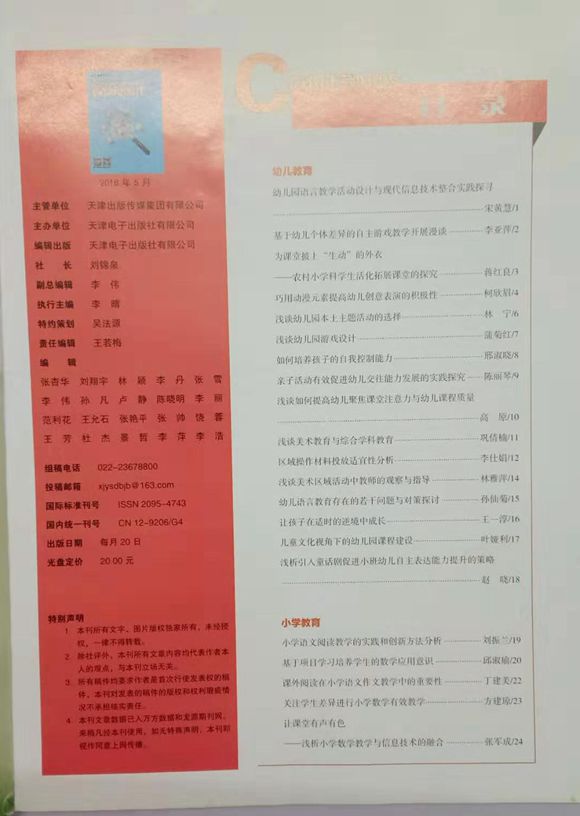 目 录
2018 年 5 月
主管单位 天津出版传媒集团有限公司
主办单位 天津电子出版社有限公司
编辑出版 天津电子出版社有限公司
社 长 刘锦泉
副总编辑 李 伟
执行主编 李 晴
特约策划 吴法源
责任编辑 王若梅
编 辑
张杏华 刘翔宇 林 颖 李 丹 张 雪
李 伟 孙 凡 卢 静 陈晓明 李 丽
范利花 王允石 张艳平 张 帅 饶 蓉
王 芳 杜 杰 景 哲 李 萍 李 浩
组稿电话 022-23678800
投稿邮箱 xjysdbjb@163.com
国际标准刊号 ISSN 2095-4743
国内统一刊号 CN 12-9206/G4
出版日期 每月 20 日
光盘定价 20.00 元
特别声明
1 本刊所有文字、图片版权独家所有，未经授
权，一律不得转载。
2 除社评外，本刊所有文章内容均代表作者本
人的观点，与本刊立场无关。
3 所有稿件均要求作者是首次行使发表权的稿
件，本刊对发表的稿件的版权和权利瑕疵情
况不承担核实责任。
4 本刊文章数据已入万方数据和龙源期刊网。
来稿凡经本刊使用，如无特殊声明，本刊即
视作同意上网传播。
幼儿教育
幼儿园语言教学活动设计与现代信息技术整合实践探寻
宋黄慧/1
基于幼儿个体差异的自主游戏教学开展漫谈 李亚萍/2
为课堂披上“生动”的外衣
——农村小学科学生活化拓展课堂的探究 蒋红良/3
巧用动漫元素提高幼儿创意表演的积极性 柯欣眉/4
浅谈幼儿园本土主题活动的选择 林 宁/6
浅谈幼儿园游戏设计 蒲菊红/7
如何培养孩子的自我控制能力 邢淑晓/8
亲子活动有效促进幼儿交往能力发展的实践探究 陈丽琴/9
浅谈如何提高幼儿聚焦课堂注意力与幼儿课程质量
高 原/10
浅谈美术教育与综合学科教育 巩倩楠/11
区域操作材料投放适宜性分析 李仕娟/12
浅谈美术区域活动中教师的观察与指导 林雅萍/14
幼儿语言教育存在的若干问题与对策探讨 孙仙菊/15
让孩子在适时的逆境中成长 王一淳/16
儿童文化视角下的幼儿园课程建设 叶媛利/17
浅析引入童话剧促进小班幼儿自主表达能力提升的策略
赵 晓/18
小学教育
小学语文阅读教学的实践和创新方法分析 刘振兰/19
基于项目学习培养学生的数学应用意识 邱淑瑜/20
课外阅读在小学语文作文教学中的重要性 丁建美/22
关注学生差异进行小学数学有效教学 方建琼/23
让课堂有声有色
——浅析小学数学教学与信息技术的融合 张军成/24